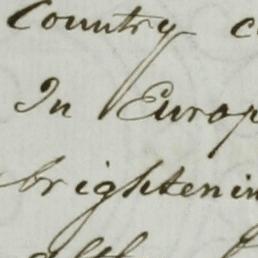 Country
In Europ
brightenin